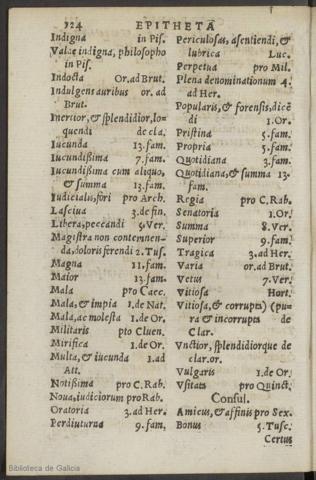 324 EPITHETA
Indigna in Pis.
Valde indigna, philosopho
in Pis.
Indocta Or. ad Brut.
Indulgens auribus or. ad
Brut.
Inertior, & splendidior, lo-
quendi de cla.
Iucunda 13. fam.
Iucundissima 7. fam.
Iucundissima cum aliquo,
& summa 13. fam.
Iudicialis, fori pro Arch.
Lasciua 3. de fin.
Libera, peccandi 5. Ver.
Magistra non contemnen-
da, doloris ferendi 2. Tus.
Magna 11. fam.
Maior 13. fam.
Mala pro Caec.
Mala, & impia 1. de Nat.
Mala, ac molesta 1. de Or.
Militaris pto Cluen.
Mirifica 1. de Or.
Multa, & iucunda 1. ad
Att.
Notissima pro C. Rab.
Noua, iudiciorum pro Rab.
Oratoria 3. ad Her.
Perdiuturna 9. fam.
Periculosas, asentiendi, &
lubrica Luc.
Perpetua pro Mil.
Plena denominationum 4.
ad Her.
Popularis, & forensis, dicē
di 1. Or.
Pristina 5. fam.
Propria 5. fam.
Quotidiana 3. fam.
Quotidiana, & summa 13.
fam.
Regia pro C. Rab.
Senatoria 1. Or.
Summa 8. Ver.
Superior 9. fam.
Tragica 3. ad Her.
Varia or. ad Brut.
Vetus 7. Ver.
Vitiosa Hort.
Vitiosa, & corrupta) (pu-
ra & incorrupta de
Clar.
Vnctior, splendidiorque de
clar. or.
Vulgaris 1. de Or.
Vsitata pro Quinct.
Consul.
Amicus, & affinis pro Sex.
Bonus 5. Tusc.
Certus
Biblioteca de Galicia